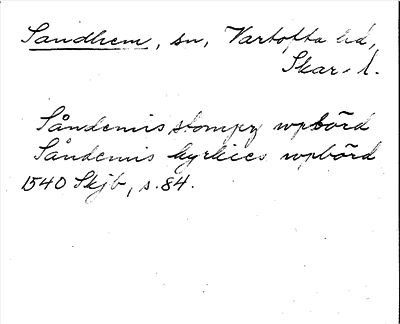 Sandhem, sn, Vartofta hd,
Skar. l.
Såndemis stompn wpbörd
Såndemis kyrkies wpbörd
1540 Skjb, s. 84.